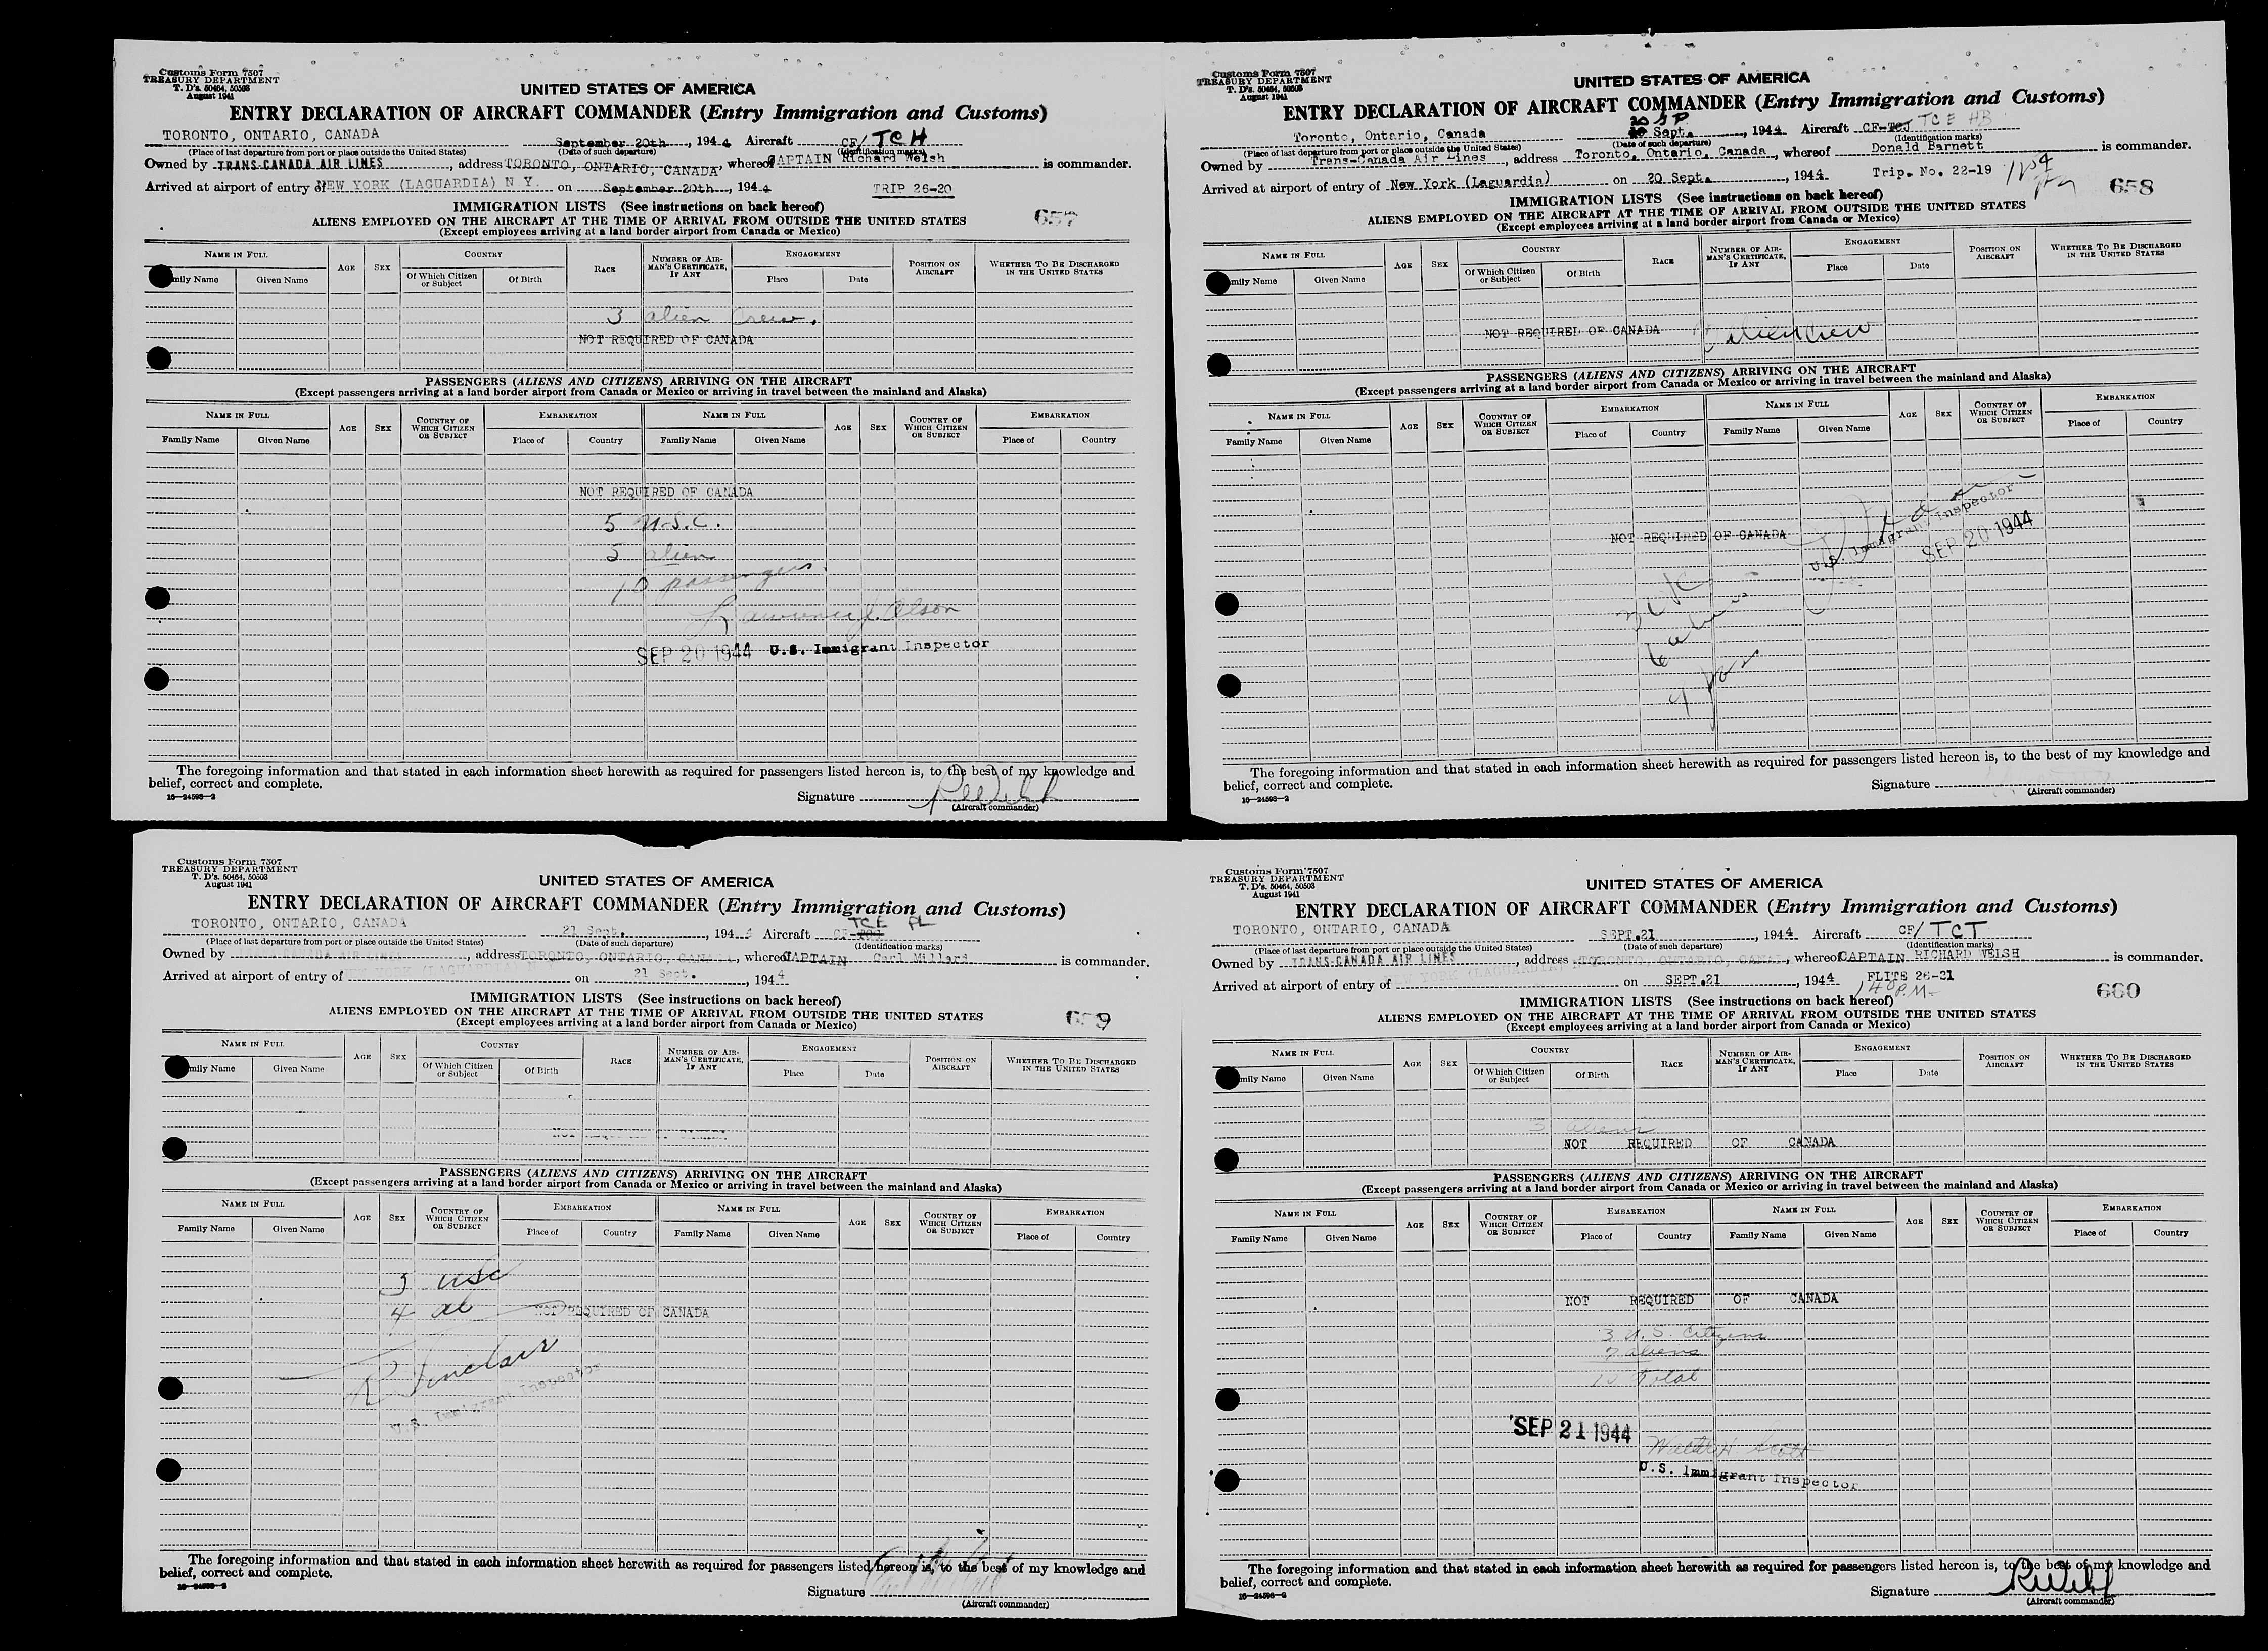 Customs Form 7507
TREASURY DEPARTMENT
T. D's. 50464, 50503
August 1941
UNITED STATES OF AMERICA
ENTRY DECLARATION OF AIRCRAFT COMMANDER (Entry Immigration and Customs)
TORONTO, ONTARIO, CANADA September 20th, 1944 Aircraft CF/TCH
(Place of last departure from port or place outside the United States) (Date of such departure) (Identification marks)
Owned by TRANS-CANADA AIR LINES, address TORONTO, ONTARIO, CANADA, whereof CAPTAIN Richard Welsh is commander.
Arrived at airport of entry of NEW YORK (LAGUARDIA) N.Y. on September 20th, 1944 TRIP 26-20
IMMIGRATION LISTS (See instructions on back hereof)
657
ALIENS EMPLOYED ON THE AIRCRAFT AT THE TIME OF ARRIVAL FROM OUTSIDE THE UNITED STATES
(Except employees arriving at a land border airport from Canada or Mexico)
NAME IN FULL AGE SEX COUNTRY RACE NUMBER OF AIRMAN'S CERTIFICATE, IF ANY ENGAGEMENT POSITION ON AIRCRAFT WHETHER TO BE DISCHARGED IN THE UNITED STATES
mily Name Given Name Of Which Citizen or Subject Of Birth Place Date
3 alien Crew.
NOT REQUIRED OF CANADA
PASSENGERS (ALIENS AND CITIZENS) ARRIVING ON THE AIRCRAFT
(Except passengers arriving at a land border airport from Canada or Mexico or arriving in travel between the mainland and Alaska)
NAME IN FULL AGE SEX COUNTRY OF WHICH CITIZEN OR SUBJECT EMBARKATION NAME IN FULL AGE SEX COUNTRY OF WHICH CITIZEN OR SUBJECT EMBARKATION
Family Name Given Name Place of Country Family Name Given Name Place of Country
NOT REQUIRED OF CANADA
5 U.S.C.
5 alien
10 passengers.
Lawrence J. Olson
SEP 20 1944 U.S. Immigrant Inspector
The foregoing information and that stated in each information sheet herewith as required for passengers listed hereon is, to the best of my knowledge and
belief, correct and complete.
16—24598-2
Signature R Welsh
(Aircraft commander)
Customs Form 7507
TREASURY DEPARTMENT
T. D's. 50464, 50503
August 1941
UNITED STATES OF AMERICA
ENTRY DECLARATION OF AIRCRAFT COMMANDER (Entry Immigration and Customs)
Toronto, Ontario, Canada 20 Sept., 1944 Aircraft CF-TCJ TCE HB
(Place of last departure from port or place outside the United States) (Date of such departure) (Identification marks)
Owned by Trans-Canada Air Lines, address Toronto, Ontario, Canada, whereof Donald Barnett is commander.
Arrived at airport of entry of New York (Laguardia) on 20 Sept., 1944 Trip. No. 22-19
658
IMMIGRATION LISTS (See instructions on back hereof)
ALIENS EMPLOYED ON THE AIRCRAFT AT THE TIME OF ARRIVAL FROM OUTSIDE THE UNITED STATES
(Except employees arriving at a land border airport from Canada or Mexico)
NAME IN FULL AGE SEX COUNTRY RACE NUMBER OF AIRMAN'S CERTIFICATE, IF ANY ENGAGEMENT POSITION ON AIRCRAFT WHETHER TO BE DISCHARGED IN THE UNITED STATES
mily Name Given Name Of Which Citizen or Subject Of Birth Place Date
NOT REQUIRED OF CANADA alien Crew
PASSENGERS (ALIENS AND CITIZENS) ARRIVING ON THE AIRCRAFT
(Except passengers arriving at a land border airport from Canada or Mexico or arriving in travel between the mainland and Alaska)
NAME IN FULL AGE SEX COUNTRY OF WHICH CITIZEN OR SUBJECT EMBARKATION NAME IN FULL AGE SEX COUNTRY OF WHICH CITIZEN OR SUBJECT EMBARKATION
Family Name Given Name Place of Country Family Name Given Name Place of Country
NOT REQUIRED OF CANADA
U.S. Immigrant Inspector
SEP 20 1944
9 pas
The foregoing information and that stated in each information sheet herewith as required for passengers listed hereon is, to the best of my knowledge and
belief, correct and complete.
16—24598-2
Signature
(Aircraft commander)
Customs Form 7507
TREASURY DEPARTMENT
T. D's. 50464, 50503
August 1941
UNITED STATES OF AMERICA
ENTRY DECLARATION OF AIRCRAFT COMMANDER (Entry Immigration and Customs)
TORONTO, ONTARIO, CANADA 21 Sept., 1944 Aircraft CF- TCE PL
(Place of last departure from port or place outside the United States) (Date of such departure) (Identification marks)
Owned by TRANS-CANADA AIR LINES, address TORONTO, ONTARIO, CANADA, whereof CAPTAIN Carl Millard is commander.
Arrived at airport of entry of NEW YORK (LAGUARDIA) on 21 Sept., 1944
IMMIGRATION LISTS (See instructions on back hereof)
659
ALIENS EMPLOYED ON THE AIRCRAFT AT THE TIME OF ARRIVAL FROM OUTSIDE THE UNITED STATES
(Except employees arriving at a land border airport from Canada or Mexico)
NAME IN FULL AGE SEX COUNTRY RACE NUMBER OF AIRMAN'S CERTIFICATE, IF ANY ENGAGEMENT POSITION ON AIRCRAFT WHETHER TO BE DISCHARGED IN THE UNITED STATES
mily Name Given Name Of Which Citizen or Subject Of Birth Place Date
NOT REQUIRED OF CANADA
PASSENGERS (ALIENS AND CITIZENS) ARRIVING ON THE AIRCRAFT
(Except passengers arriving at a land border airport from Canada or Mexico or arriving in travel between the mainland and Alaska)
NAME IN FULL AGE SEX COUNTRY OF WHICH CITIZEN OR SUBJECT EMBARKATION NAME IN FULL AGE SEX COUNTRY OF WHICH CITIZEN OR SUBJECT EMBARKATION
Family Name Given Name Place of Country Family Name Given Name Place of Country
3 usc
4 al NOT REQUIRED OF CANADA
R Sinclair
U.S. Immigrant Inspector
The foregoing information and that stated in each information sheet herewith as required for passengers listed hereon is, to the best of my knowledge and
belief, correct and complete.
16—24598-2
Signature
(Aircraft commander)
Customs Form 7507
TREASURY DEPARTMENT
T. D's. 50464, 50503
August 1941
UNITED STATES OF AMERICA
ENTRY DECLARATION OF AIRCRAFT COMMANDER (Entry Immigration and Customs)
TORONTO, ONTARIO, CANADA SEPT.21, 1944 Aircraft CF/TCT
(Place of last departure from port or place outside the United States) (Date of such departure) (Identification marks)
Owned by TRANS-CANADA AIR LINES, address TORONTO, ONTARIO, CANAD, whereof CAPTAIN RICHARD WELSH is commander.
Arrived at airport of entry of NEW YORK (LAGUARDIA) on SEPT.21, 1944 FLITE 26-21
140 P.M.
660
IMMIGRATION LISTS (See instructions on back hereof)
ALIENS EMPLOYED ON THE AIRCRAFT AT THE TIME OF ARRIVAL FROM OUTSIDE THE UNITED STATES
(Except employees arriving at a land border airport from Canada or Mexico)
NAME IN FULL AGE SEX COUNTRY RACE NUMBER OF AIRMAN'S CERTIFICATE, IF ANY ENGAGEMENT POSITION ON AIRCRAFT WHETHER TO BE DISCHARGED IN THE UNITED STATES
mily Name Given Name Of Which Citizen or Subject Of Birth Place Date
3 aliens
NOT REQUIRED OF CANADA
PASSENGERS (ALIENS AND CITIZENS) ARRIVING ON THE AIRCRAFT
(Except passengers arriving at a land border airport from Canada or Mexico or arriving in travel between the mainland and Alaska)
NAME IN FULL AGE SEX COUNTRY OF WHICH CITIZEN OR SUBJECT EMBARKATION NAME IN FULL AGE SEX COUNTRY OF WHICH CITIZEN OR SUBJECT EMBARKATION
Family Name Given Name Place of Country Family Name Given Name Place of Country
NOT REQUIRED OF CANADA
3 U.S. Citizens
7 aliens
10 Total
SEP 21 1944
Walter H. Scott
U.S. Immigrant Inspector
The foregoing information and that stated in each information sheet herewith as required for passengers listed hereon is, to the best of my knowledge and
belief, correct and complete.
16—24598-2
Signature R Welsh
(Aircraft commander)